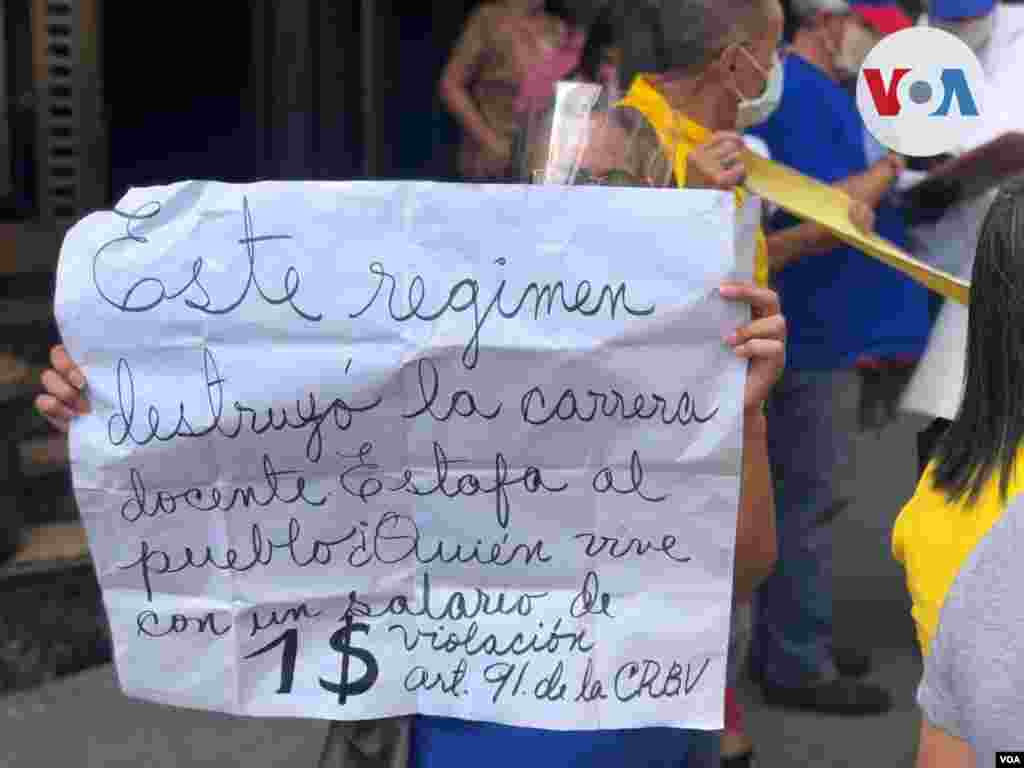 VOA
Este regimen
destruyó la carrera
docente Estafa al
pueblo ¿Quién vive
con un salario de
1$ violación
art. 91. de la CRBV
VOA